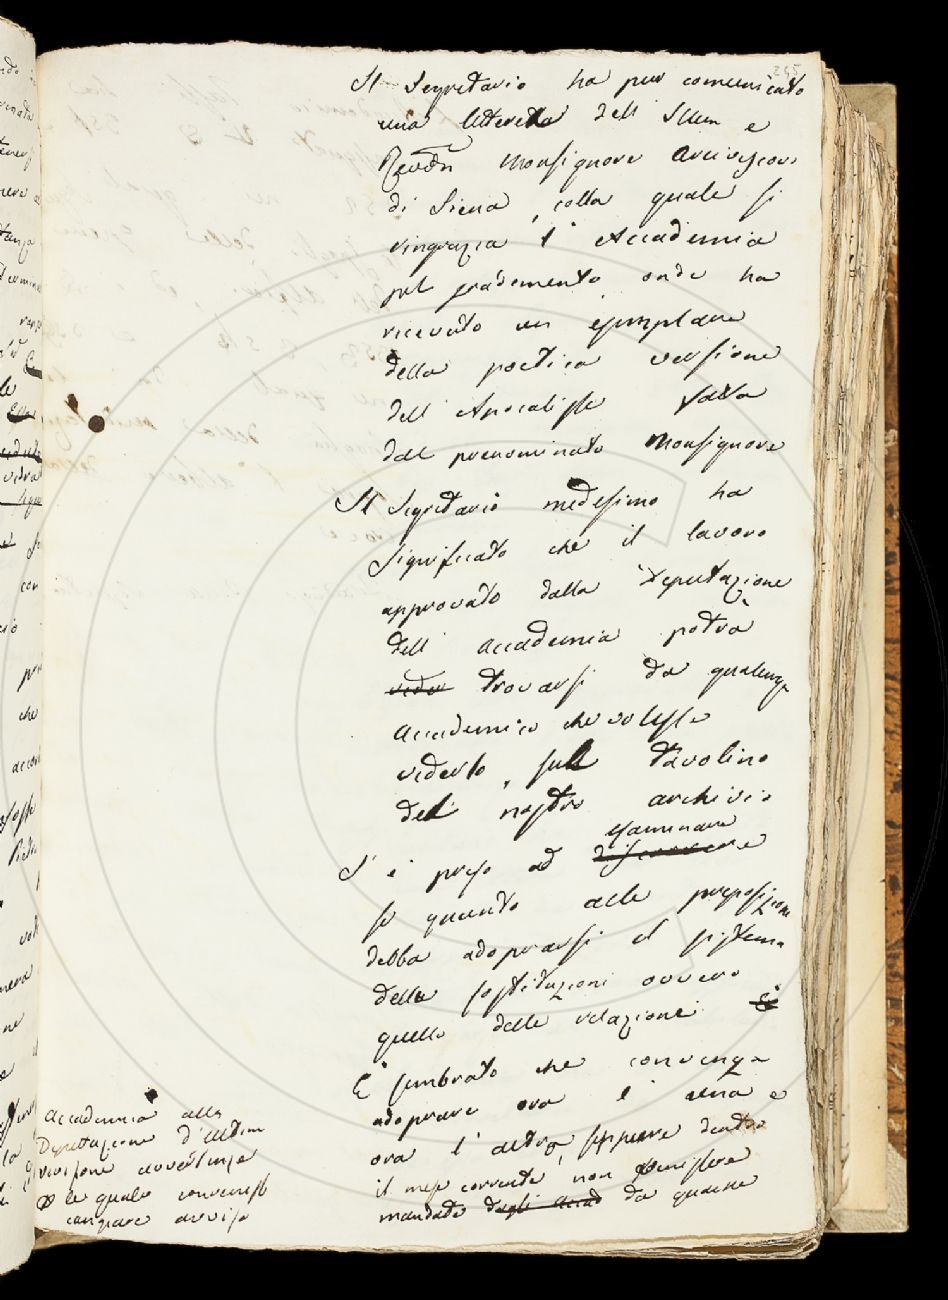 245
Il Segretario ha pur comunicato
una lettera dell Illm e
Revdm Monsignore Arcivescovo
di Siena, colla quale si
ringrazia l'Accademia
pel gradimento onde ha
ricevuto un esemplare
della poetica versione
dell Apocalisse fatta
dal prenominato Monsignore
Il Segretario medesimo ha
significato che il lavoro
approvato dalla Deputazione
dell accademia potrà
veder trovarsi da qualunq
Accademico che volesse
vederlo, sul tavolino
del nostro archivio
esaminare
S'è preso ad discorrere
se quanto alle proposizioni
debba adoprarsi il sistema
delle sostituzioni ovvero
quello delle relazioni È
È sembrato che convenga
adoprare ora l'una e
ora l'altro, seppure dentro
il mese corrente non venissero
mandate dagli Accad da qualche
Accademico alla
Deputazione d'ultim
revisione avvertenze
le quali
cangiare avviso